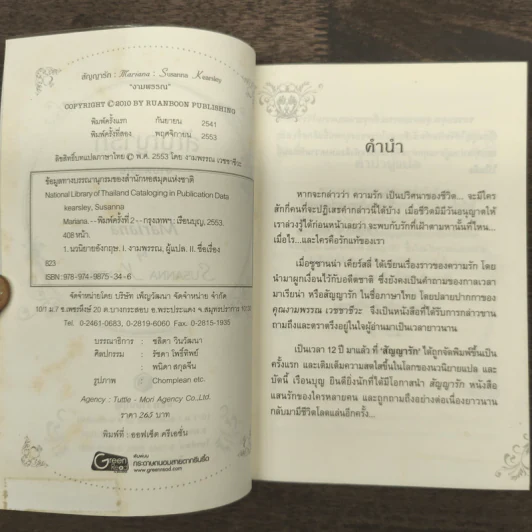 สัญญารัก : Mariana : Susanna Kearsley
"งามพรรณ"
COPYRIGHT © 2010 BY RUANBOON PUBLISHING
พิมพ์ครั้งแรก กันยายน 2541
พิมพ์ครั้งที่สอง พฤศจิกายน 2553
ลิขสิทธิ์บทแปลภาษาไทย © พ.ศ. 2553 โดย งามพรรณ เวชชาชีวะ
ข้อมูลทางบรรณานุกรมของสำนักหอสมุดแห่งชาติ
National Library of Thailand Cataloging in Publication Data
kearsley, Susanna
Mariana.--พิมพ์ครั้งที่ 2--กรุงเทพฯ : เรือนบุญ, 2553.
408 หน้า.
1. นวนิยายอังกฤษ. I. งามพรรณ, ผู้แปล. II. ชื่อเรื่อง
823
ISBN : 978-974-9875-34-6
จัดจำหน่ายโดย บริษัท เพ็ญวัฒนา จัดจำหน่าย จำกัด
10/1 ม.7 ซ.เพชรหึงษ์ 20 ต.บางกระสอบ อ.พระประแดง จ.สมุทรปราการ
โทร. 0-2461-0683, 0-2819-6060 Fax. 0-2815-1935
บรรณาธิการ : ชลิดา วินวัฒนา
ศิลปกรรม : รัชดา โพธิ์ทิพย์
พนิดา สกุลจีน
รูปภาพ Chomplean etc.
Agency : Tuttle - Mori Agency Co.,Ltd.
ราคา 265 บาท
พิมพ์ที่ : ออฟเซ็ต ครีเอชั่น
Green
พิมพ์บน
กระดาษถนอมสายตากรีนรี้ด
www.greenread.com
คำนำ
หากจะกล่าวว่า ความรัก เป็นปริศนาของชีวิต... จะมีใคร
สักกี่คนที่จะปฏิเสธคำกล่าวนี้ได้บ้าง เมื่อชีวิตมิมีวันอนุญาตให้
เราล่วงรู้ได้ก่อนหน้าเลยว่า จะพบกับรักที่เฝ้าตามหานั้นที่ไหน...
เมื่อไร...และใครคือรักแท้ของเรา
เมื่อซูซานน่า เคียร์สลีย์ ได้เขียนเรื่องราวของความรัก โดย
นำมาผูกเงื่อนไว้กับอดีตชาติ ซึ่งยังคงเป็นคำถามของกาลเวลา
มาเรียน่า หรือสัญญารัก ในชื่อภาษาไทย โดยปลายปากกาของ
คุณงามพรรณ เวชชาชีวะ จึงเป็นหนังสือที่ได้รับการกล่าวขาน
ถามถึงและตราตรึงอยู่ในใจผู้อ่านมาเป็นเวลายาวนาน
เป็นเวลา 12 ปี มาแล้ว ที่ 'สัญญารัก' ได้ถูกจัดพิมพ์ขึ้นเป็น
ครั้งแรก และเติมเต็มความสดใสขึ้นในโลกของนวนิยายแปล และ
บัดนี้ เรือนบุญ ยินดียิ่งนักที่ได้มีโอกาสนำ สัญญารัก หนังสือ
แสนรักของใครหลายคน และถูกถามถึงอย่างต่อเนื่องยาวนาน
กลับมามีชีวิตโลดแล่นอีกครั้ง...